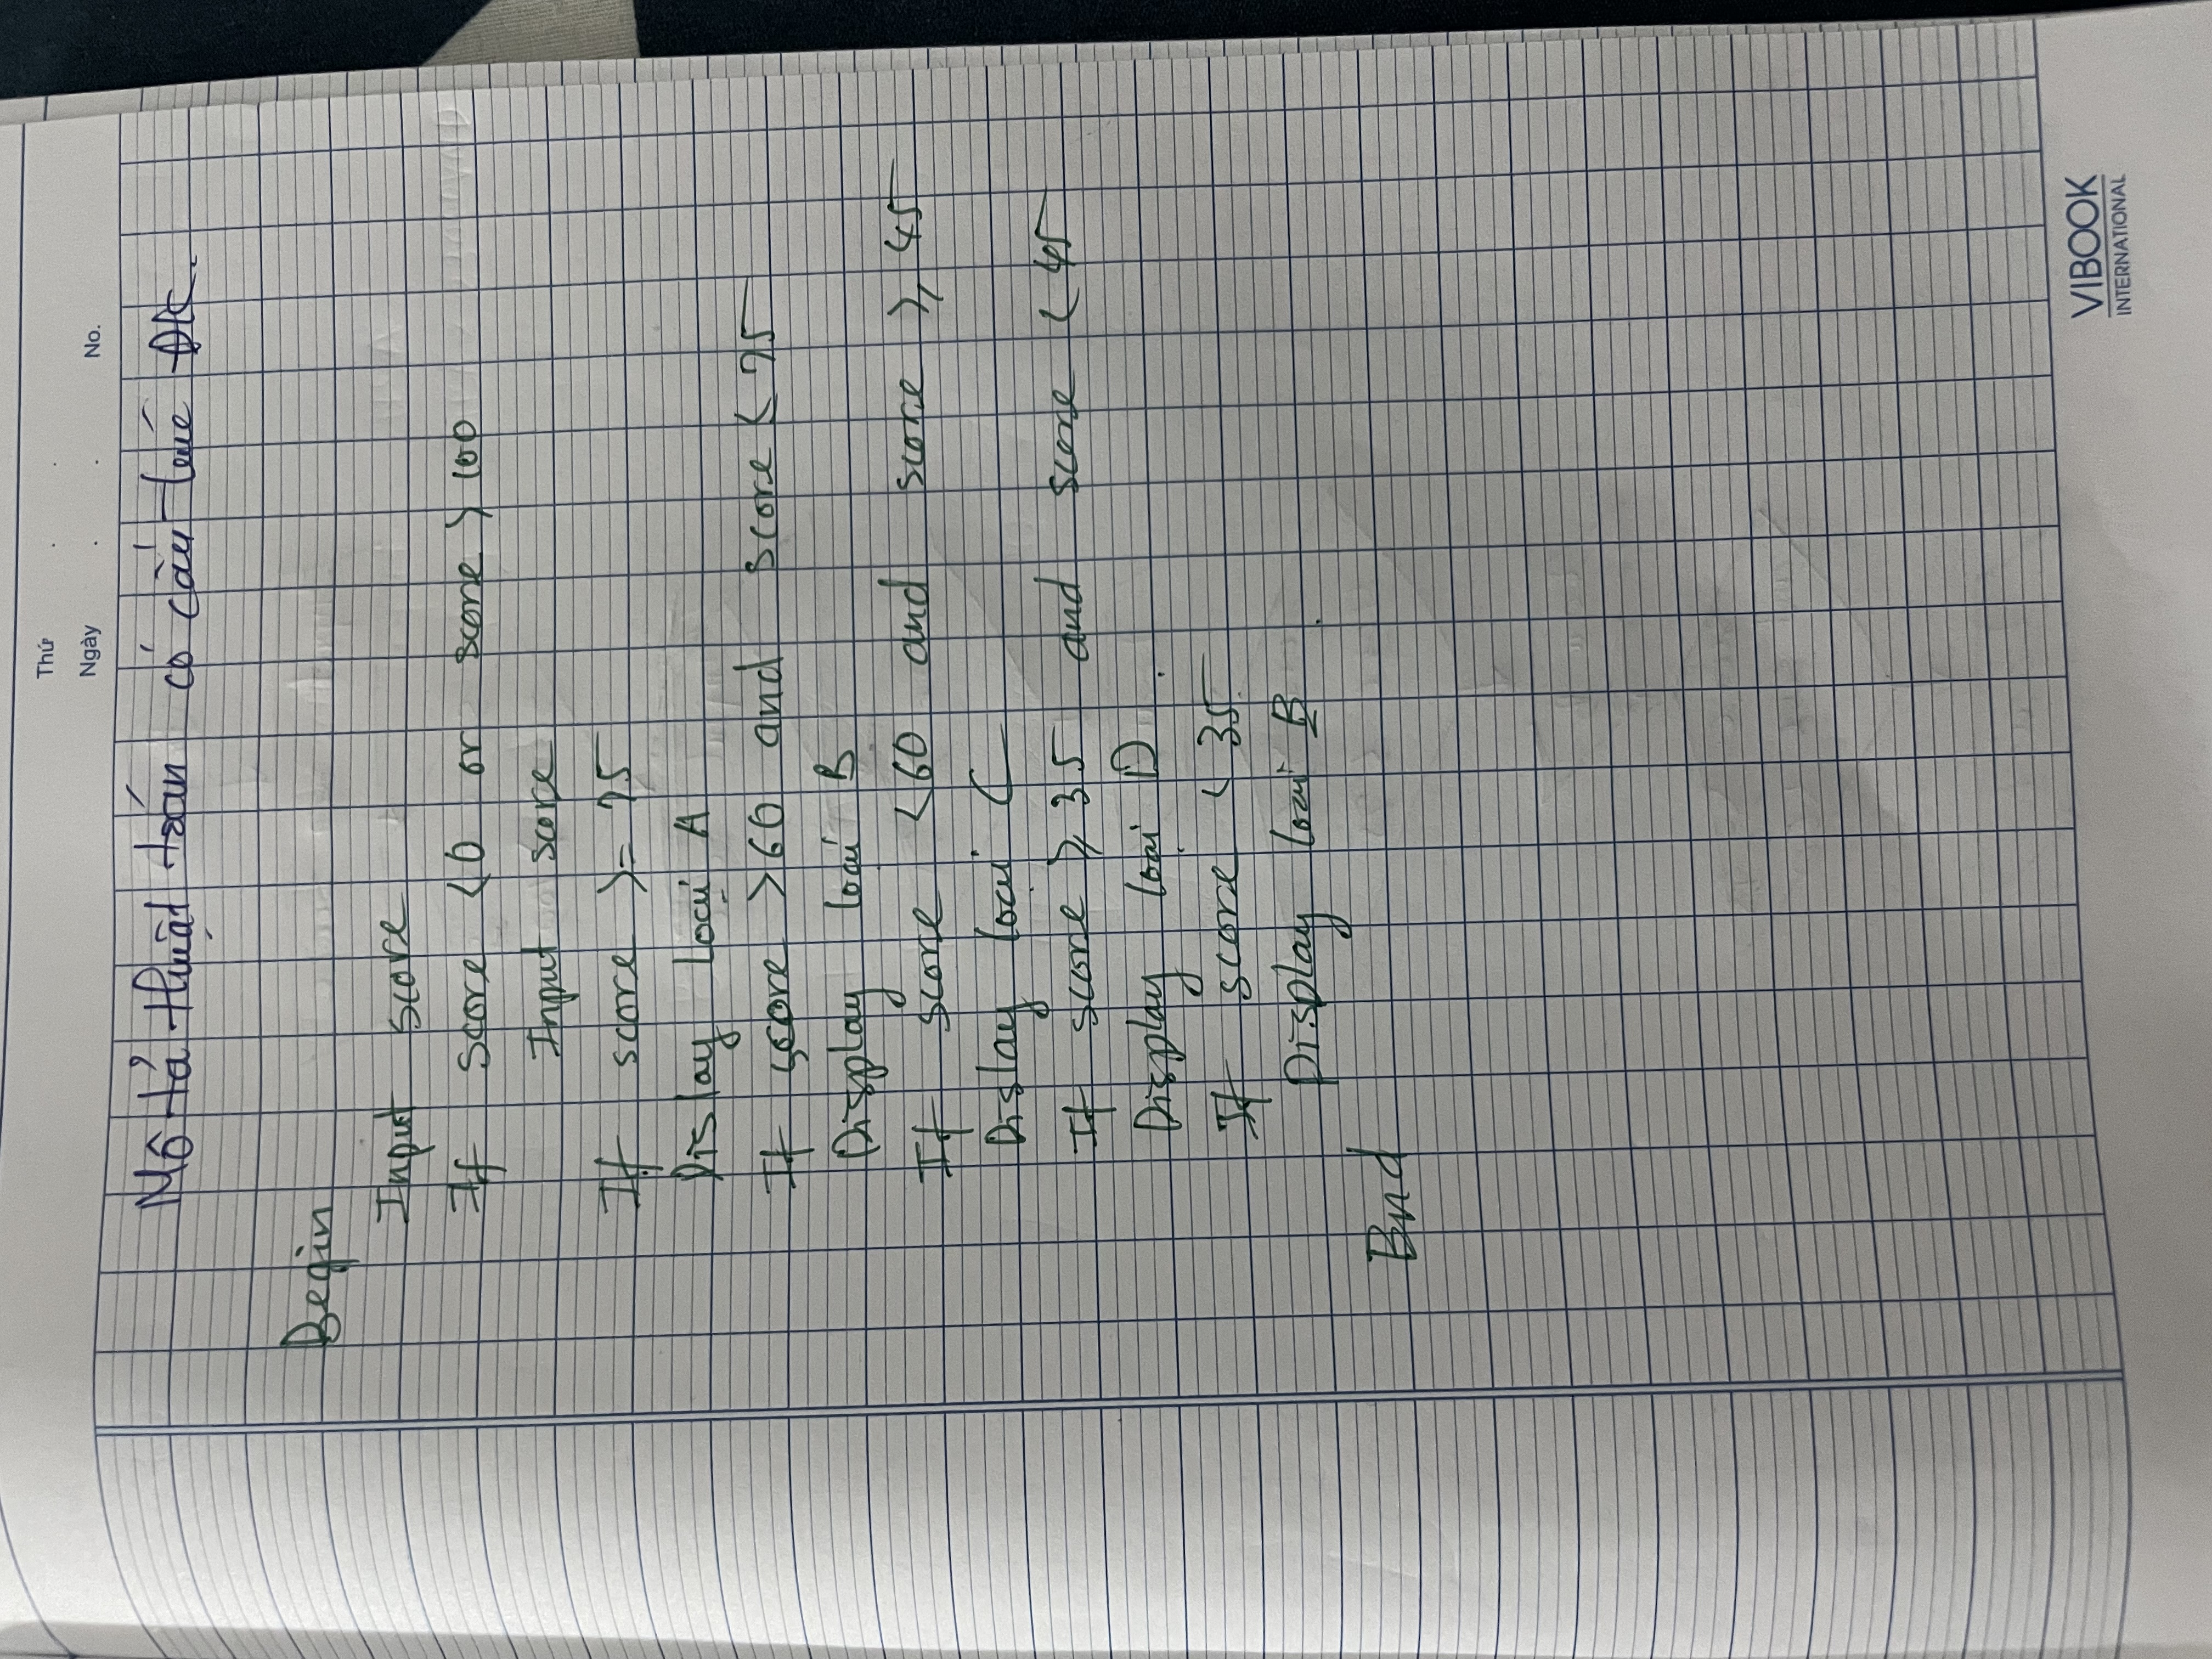 Thứ
Ngày No.
Mô tả thuật toán có cấu trúc ĐK.
Begin
Input score
If score <0 or score > 100
Input score
If score >= 75
Display Loại A
If score >60 and score < 75
Display loại B
If score <60 and score ⩾ 45
Display loại C
If score ⩾ 35 and score < 45
Display loại D
If score < 35
Display loại E
End
VIBOOK
INTERNATIONAL